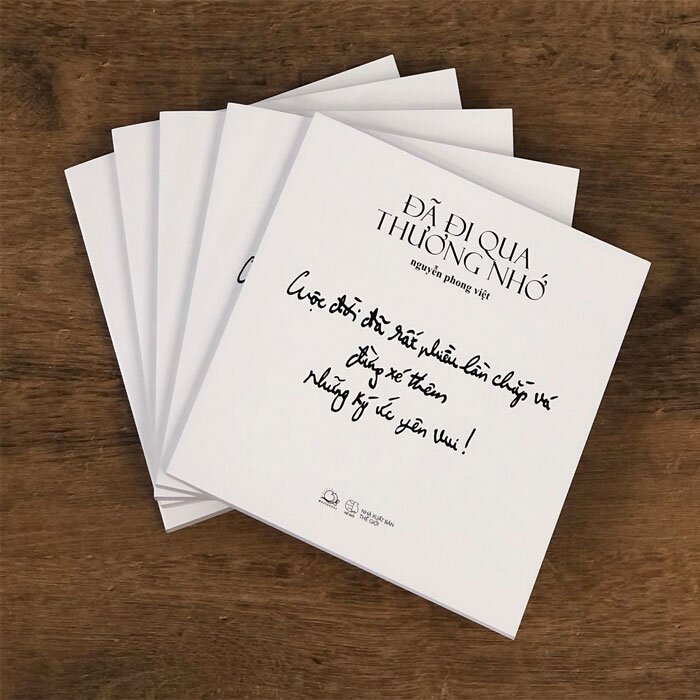 ĐÃ ĐI QUA
THƯƠNG NHỚ
nguyễn phong việt
Cuộc đời đã rất nhiều lần chắp vá
đừng xé thêm
những ký ức yên vui!
NHÀ XUẤT BẢN
THẾ GIỚI